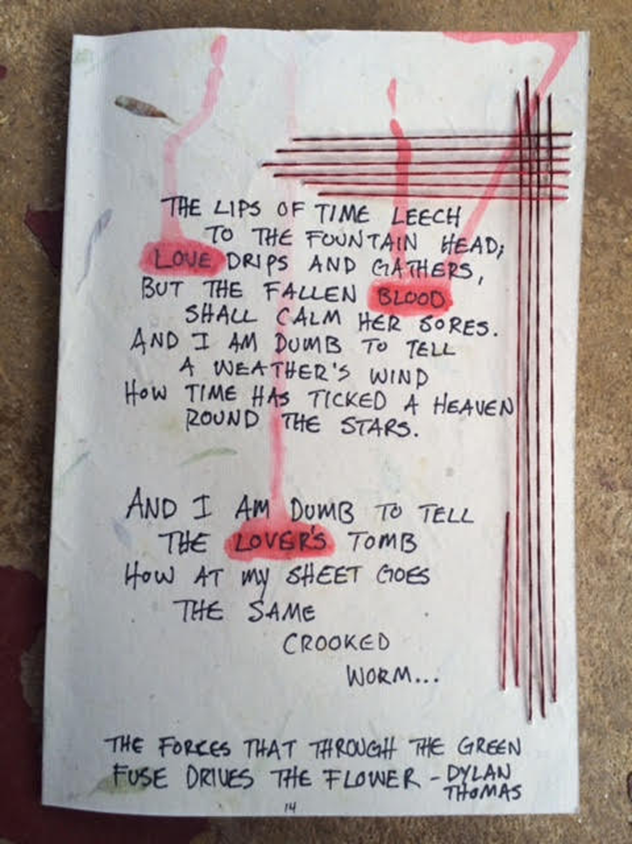 THE LIPS OF TIME LEECH
TO THE FOUNTAIN HEAD;
LOVE DRIPS AND GATHERS,
BUT THE FALLEN BLOOD
SHALL CALM HER SORES.
AND I AM DUMB TO TELL
A WEATHER'S WIND
HOW TIME HAS TICKED A HEAVEN
ROUND THE STARS.
AND I AM DUMB TO TELL
THE LOVER'S TOMB
HOW AT MY SHEET GOES
THE SAME
CROOKED
WORM...
THE FORCES THAT THROUGH THE GREEN
FUSE DRIVES THE FLOWER - DYLAN
THOMAS
14